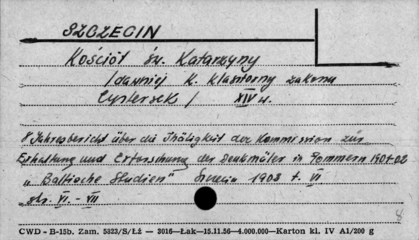 SZCZECIN
Kościół św. Katarzyny
/dawniej k. klasztorny zakonu
Cystersek / XIV w.
8 Jahresbericht über die Thätigkeit der Kommission zur
Erhaltung und Erforschung der Denkmäler in Pommern 1901-02
„Baltische Studien" 1903 t. VI
str. VI. - VII
8
CWD - B-15b. Zam. 5823/S/Łż — 3016—Łak—15.11.56—4.000.000—Karton kl. IV A1/200 g